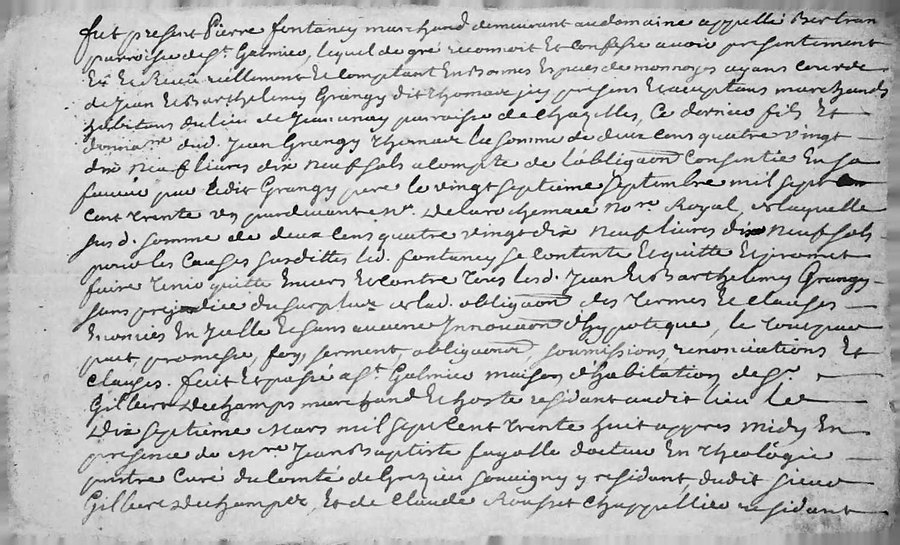 fut present Pierre fontaney marchand demeurant au domaine appellé Bertran
parroisse de St. Galmier, lequel de gré reconnoit et confesse avoir presentement
Eu et Receu réellement et comptant En Bonnes Especes de monnoyes ayans cours de
de Jean et Barthelemy Grangy dit thomas icy presens et acceptans marchands
habitans du lieu de parroisse de Chazelles, Ce dernier fils Et
donnare. dud. Jean Grangy thomas la somme de deux cens quatre vingt
dix neuf livres dix neuf sols a compte de l'obligaõn Consentie En sa
faveur par ledit Grangy pere le vingt septieme septembre mil sept
Cent trente un pardevant Me. Delarochemaie Nore. Royal, de laquelle
susd. somme de deux cens quatre vingt dix neuf livres dix neuf sols
pour les Causes susdittes led. fontaney se contente Et quitte Et promet
faire tenir quitte Envers Et Contre tous lesd. Jean Et Barthelemy Grangy
sans prejudice du surplus de lad. obligaõn des termes Et clauses
Enoncées En Icelle Et sans aucune Innovaõn d'hypoteque, le tout par
pait, promesse, foy, serment, obligaõns, soumissions, renonciations Et
clauses. fait Et passé a St. Galmier maison d'habitation de Sr.
Gilbert Dechamps marchand Et hoste residant audit lieu le
Dix septieme Mars mil sept Cent trente huit appres midy En
presence de Mre Jean Baptiste fayolle docteur En theologie
prestre Curé du Comté de Grezieu souvigny y residant dudit sieur
Gilbert Dechamps, Et de Claude Rousset Chappellier residant